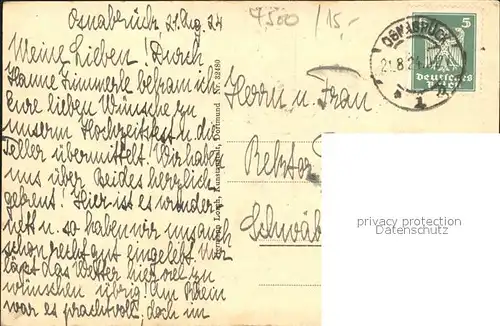 Osnabrück, 21. Aug. 24
7500 /15,-
Meine Lieben! Durch
Hanne Zimmerle bekam ich
Eure lieben Wünsche zu
unserm Hochzeitsfest u. die
Teller übermittelt. Wir haben
uns über Beides herzlich
gefreut! Hier ist es wunder-
nett u. so haben wir uns auch
schon recht gut eingelebt. Nur
lässt das Wetter hier viel zu
wünschen übrig! Am Rhein
war es prachtvoll, doch im
Hermann Lorch, Kunstanstalt, Dortmund Nr. 32480
OSNABRÜCK
21.8.24
1
5
Deutsches
Reich
Herrn u. Frau
Rektor
Schwäb
privacy protection
Datenschutz